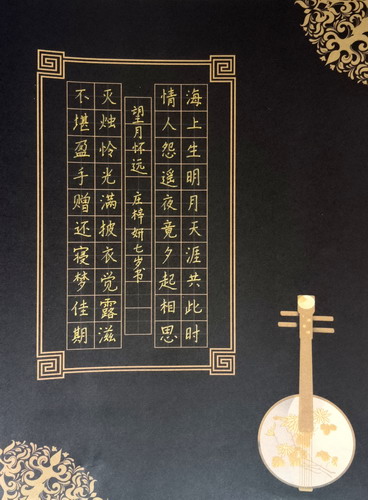 海上生明月天涯共此时
情人怨遥夜竟夕起相思
望月怀远 庄梓妍七岁书
灭烛怜光满披衣觉露滋
不堪盈手赠还寝梦佳期